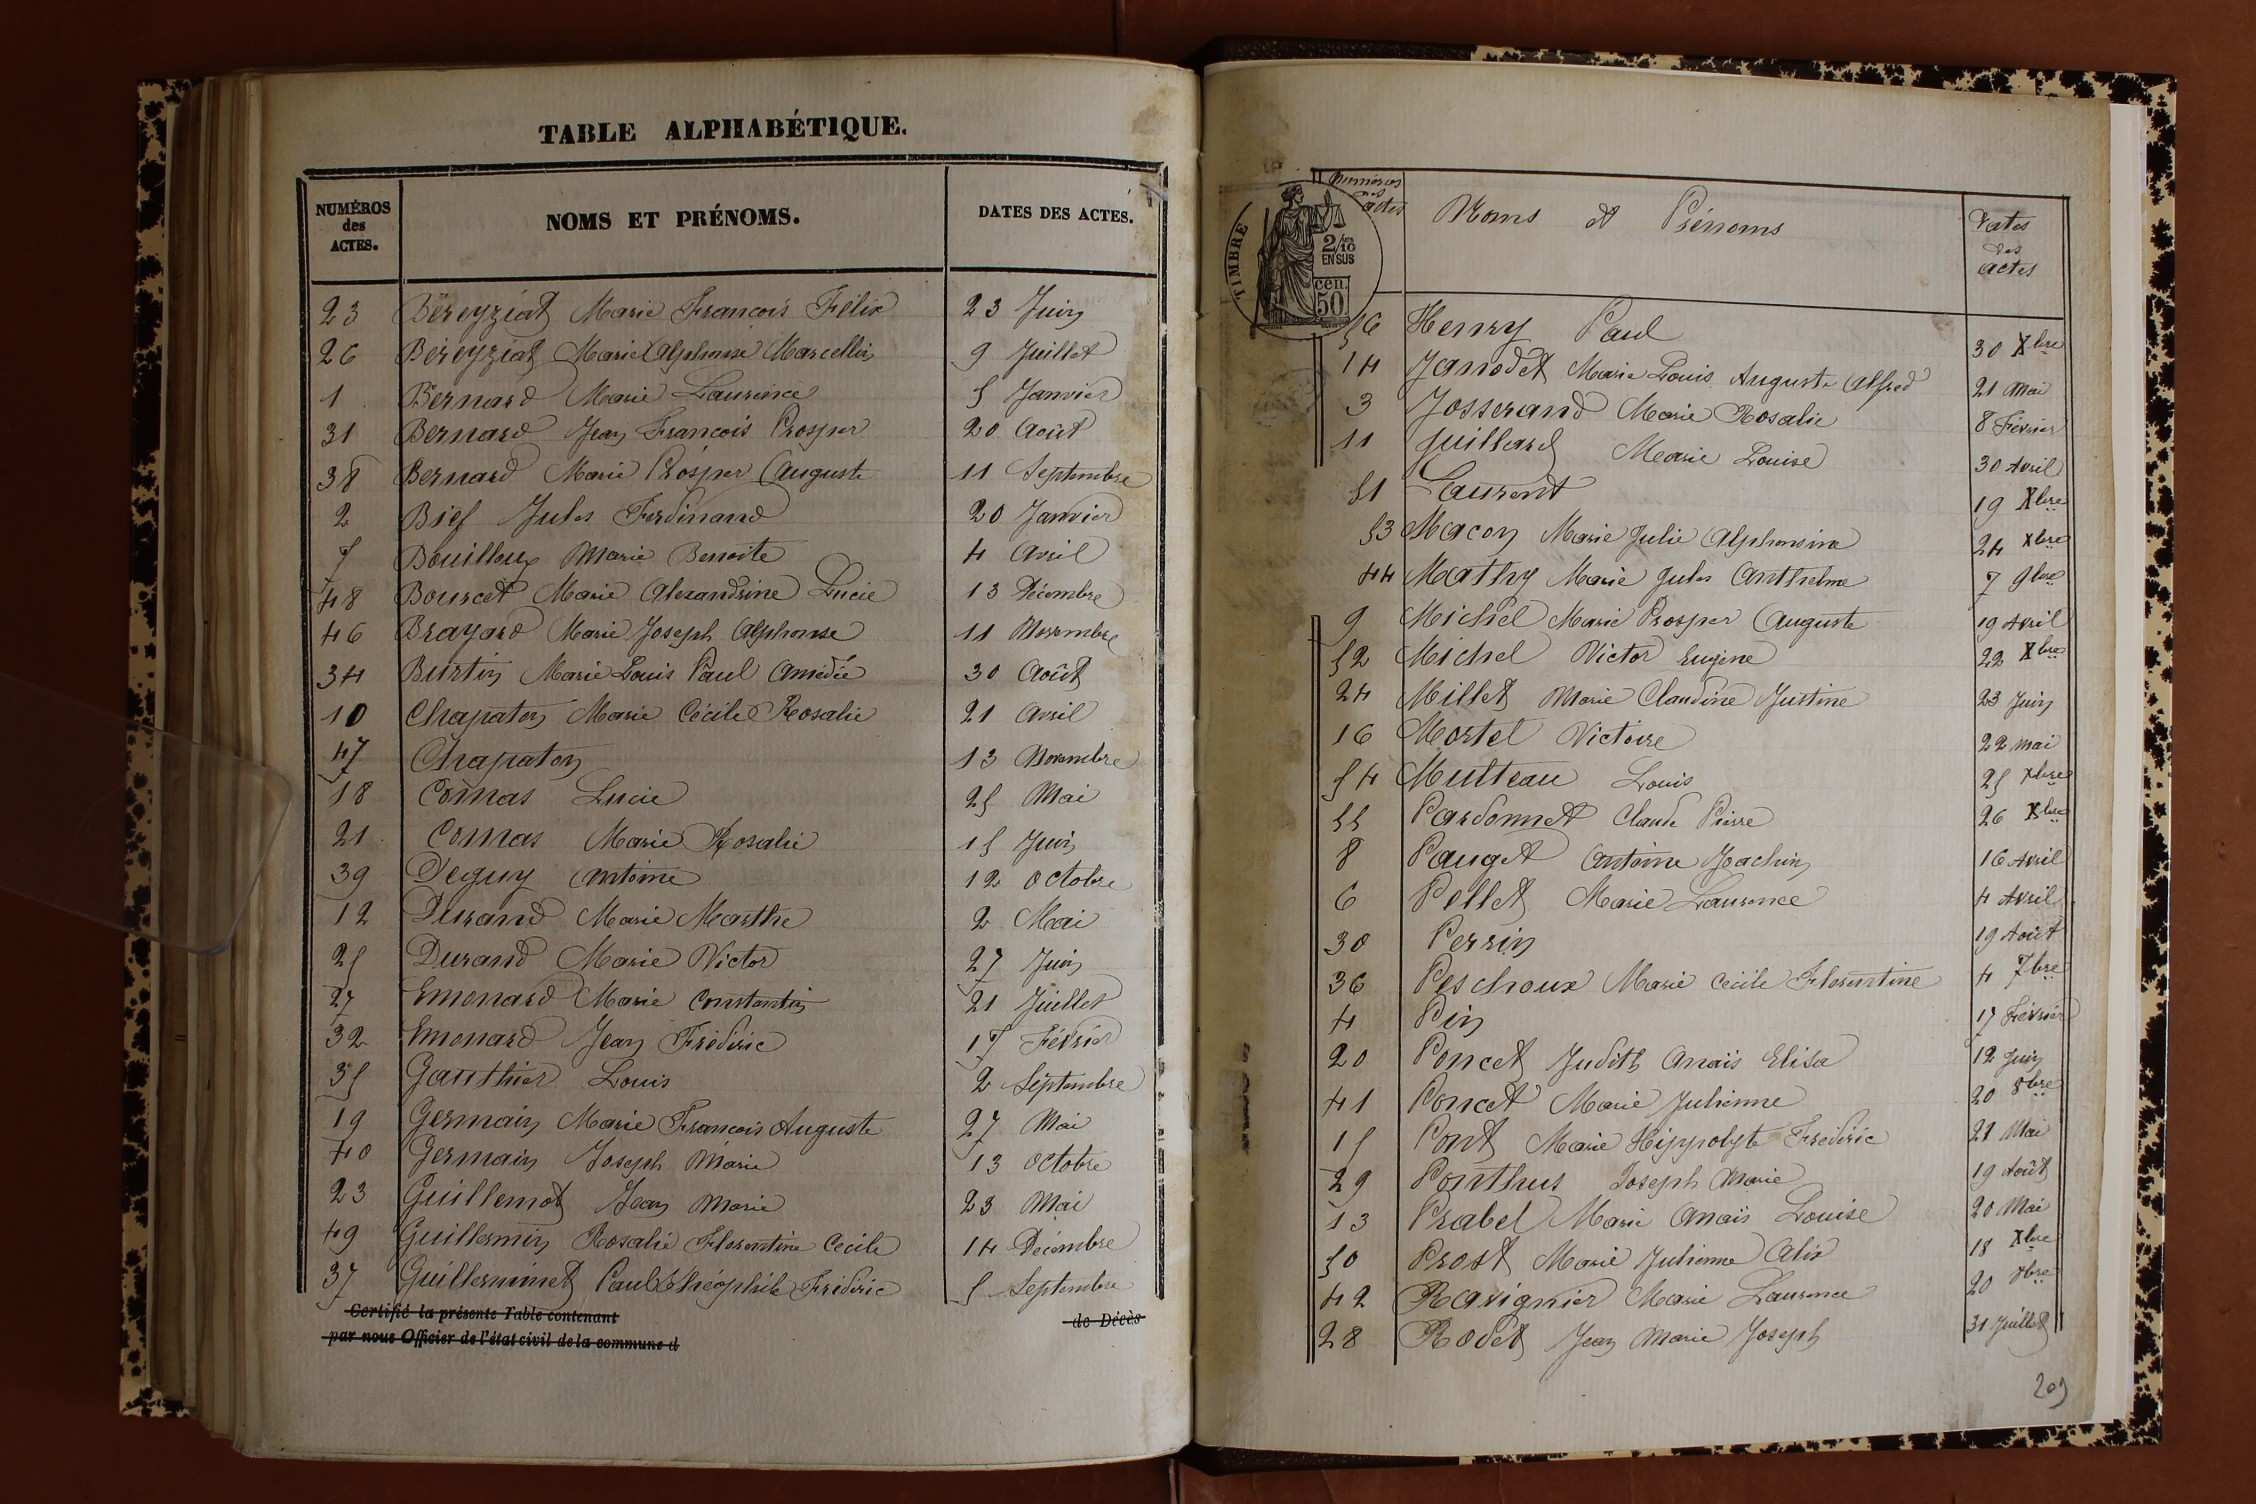 TABLE ALPHABÉTIQUE.
NUMÉROS des ACTES. NOMS ET PRÉNOMS. DATES DES ACTES.
23 Béreyziat Marie François Félix 23 Juin
26 Béreyziat Marie Alphonse Marcellin 9 Juillet
1 Bernard Marie Laurence 5 Janvier
31 Bernard Jean François Prosper 20 Août
38 Bernard Marie Prosper Auguste 11 Septembre
2 Bief Jules Ferdinand 20 Janvier
7 Bouilloux Marie Benoite 4 Avril
48 Bourcet Marie Alexandrine Lucie 13 Décembre
46 Brayard Marie Joseph Alphonse 11 Novembre
34 Burtin Marie Louis Paul Amédée 30 Août
10 Chapaton Marie Cécile Rosalie 21 Avril
47 Chapaton 13 Novembre
18 Comas Lucie 25 Mai
21 Comas Marie Rosalie 15 Juin
39 Deguy Antoine 12 Octobre
12 Durand Marie Marthe 2 Mai
25 Durand Marie Victor 27 Juin
27 Emonard Marie Constantin 21 Juillet
32 Emonard Jean Fréderic 17 Février
35 Gauthier Louis 2 Septembre
19 Germain Marie François Auguste 27 Mai
40 Germain Joseph Marie 13 Octobre
23 Guillemot Jean Marie 23 Mai
49 Guillermin Rosalie Florentine Cécile 14 Décembre
37 Guillerminet Paul Théophile Fréderic 5 Septembre
Certifié la présente Table contenant de Décès
par nous Officier de l'état civil de la commune d
TIMBRE
2/10 EN SUS
50 cen.
Numéros des actes Noms et Prénoms Dates des actes
56 Henry Paul 30 Xbre
14 Janodet Marie Louis Auguste Alfred 21 Mai
3 Josserand Marie Rosalie 8 Février
11 Juillard Marie Louise 30 Avril
51 Laurent 19 Xbre
53 Macon Marie Julie Alphonsine 24 Xbre
44 Mathy Marie Jules Anthelme 7 9bre
9 Michel Marie Prosper Auguste 19 Avril
52 Michel Victor Eugène 22 Xbre
24 Millet Marie Claudine Justine 23 Juin
16 Mortel Victoire 22 mai
54 Mutteau Louis 25 Xbre
55 Pardonnet Claude Pierre 26 Xbre
8 Pauget Antoine Joachin 16 Avril
6 Pellet Marie Laurence 4 Avril
30 Perrin 19 Août
36 Peschoux Marie Cécile Florentine 4 7bre
4 Pin 17 Février
20 Poncet Judith Anaïs Elisa 12 Juin
41 Poncet Marie Julienne 20 8bre
15 Pont Marie Hippolyte Fréderic 21 Mai
29 Ponthus Joseph Marie 19 Août
13 Prabel Marie Anaïs Louise 20 Mai
50 Prost Marie Julienne Alix 18 Xbre
42 Ravignier Marie Laurence 20 8bre
28 Rodet Jean Marie Joseph 31 Juillet
209